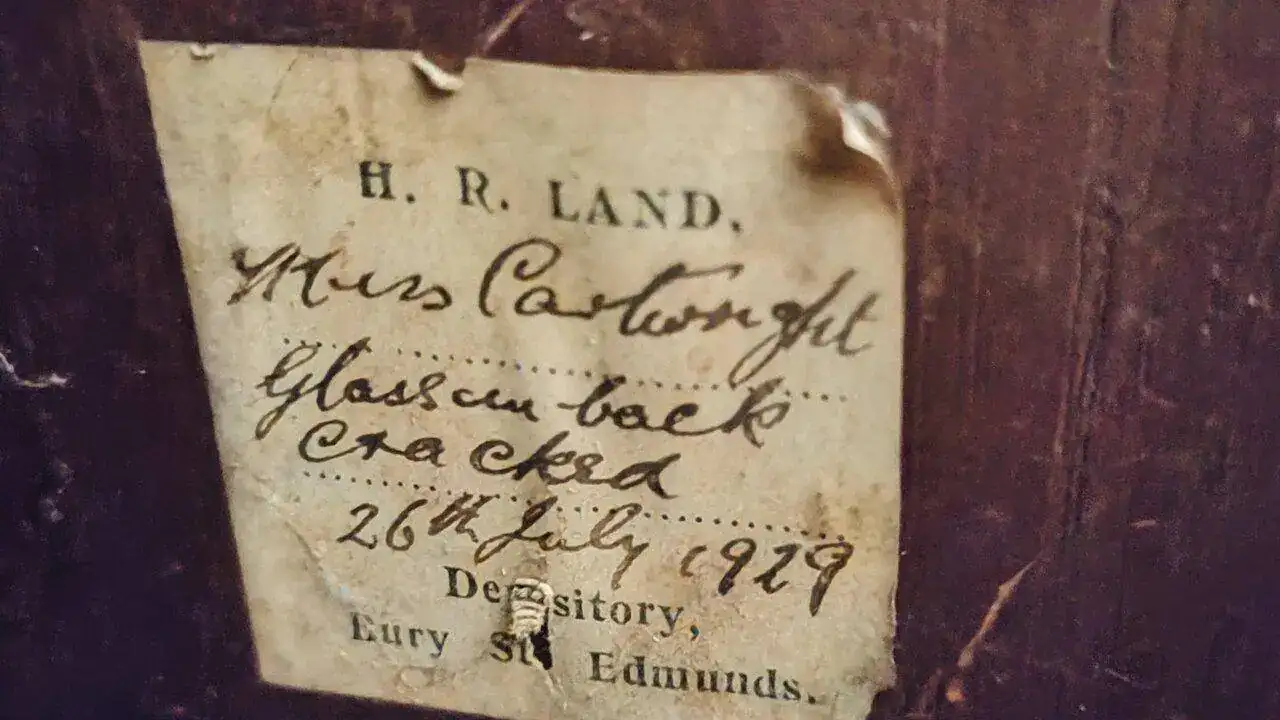 H. R. LAND,
Miss Cartwright
Glass in back
cracked
26th July 1929
Depository,
Bury St. Edmunds.